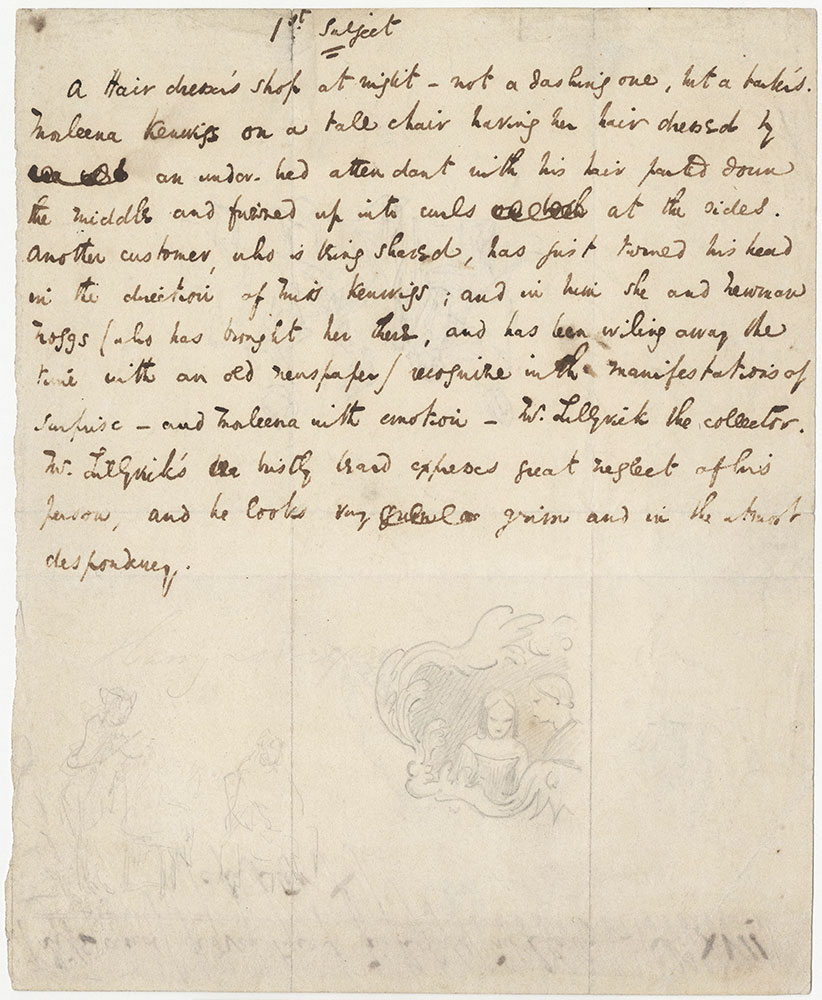 1st Subject
A Hair dresser's shop at night – not a dashing one, but a barber's.
Morleena Kenwigs on a tall chair having her hair dressed by
an under-bred attendant with his hair parted down
the middle and frizzed up into curls at the sides.
Another customer, who is being shaved, has just turned his head
in the direction of Miss Kenwigs; and in him she and Newman
Noggs (who has brought her there, and has been wiling away the
time with an old newspaper) recognize with manifestations of
surprise – and Morleena with emotion – Mr. Lillyvick the collector.
Mr. Lillyvick's bristly beard expresses great neglect of his
person, and he looks very grim and in the utmost
despondency.